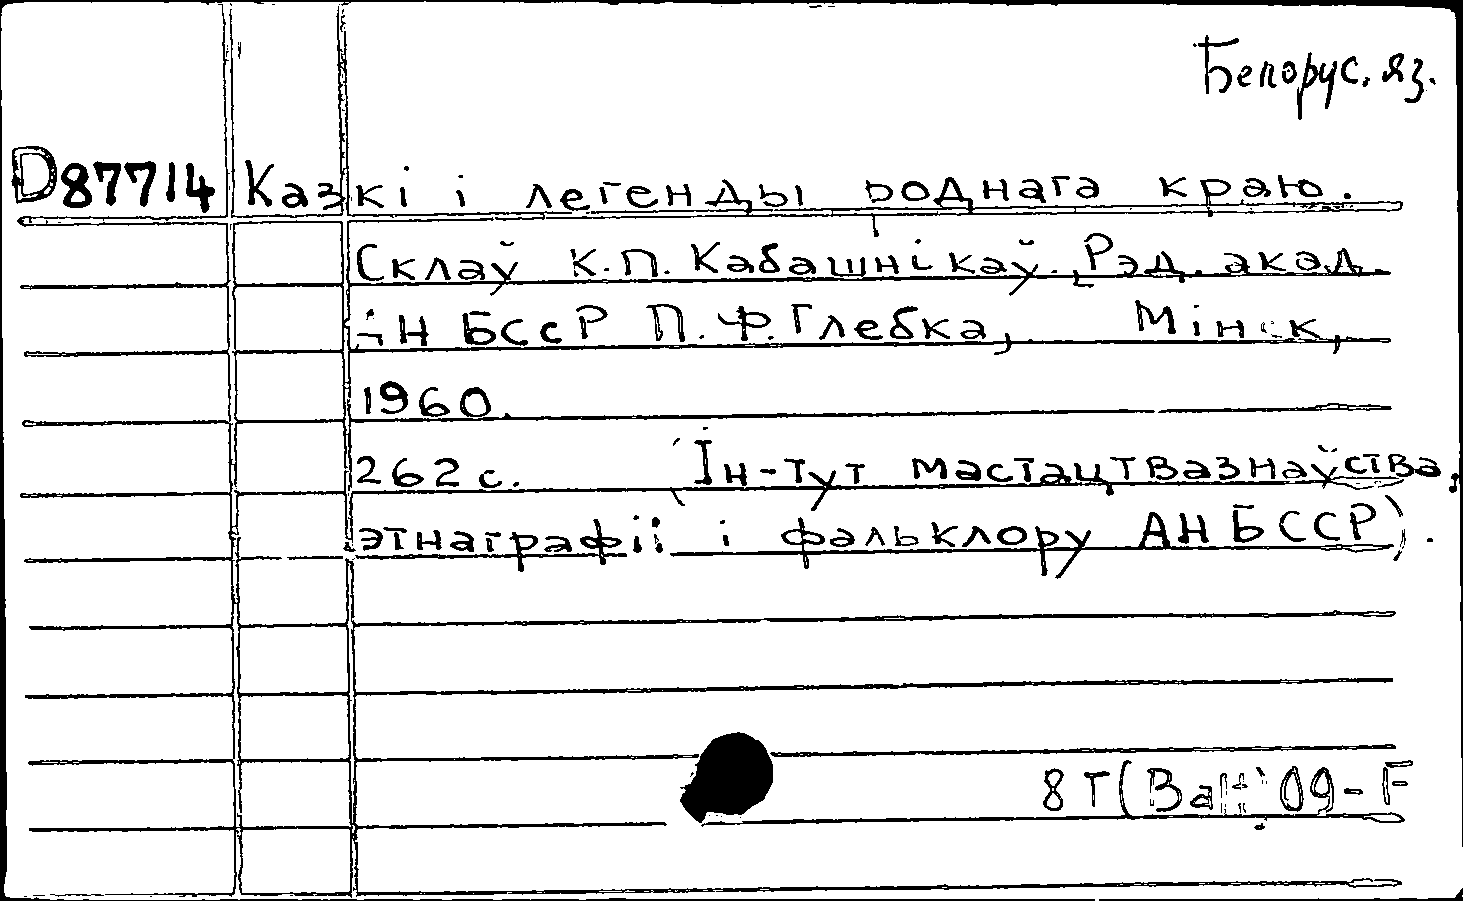 Белорус. яз.
D87714 Казкі і легенды роднага краю.
Склаў К.П. Кабашнікаў. Рэд. акад.
АН БССР П.Ф. Глебка, Мінск,
1960.
262 с. (Ін-тут мастацтвазнаўства,
этнаграфіі і фальклору АН БССР).
8Т( 09-F